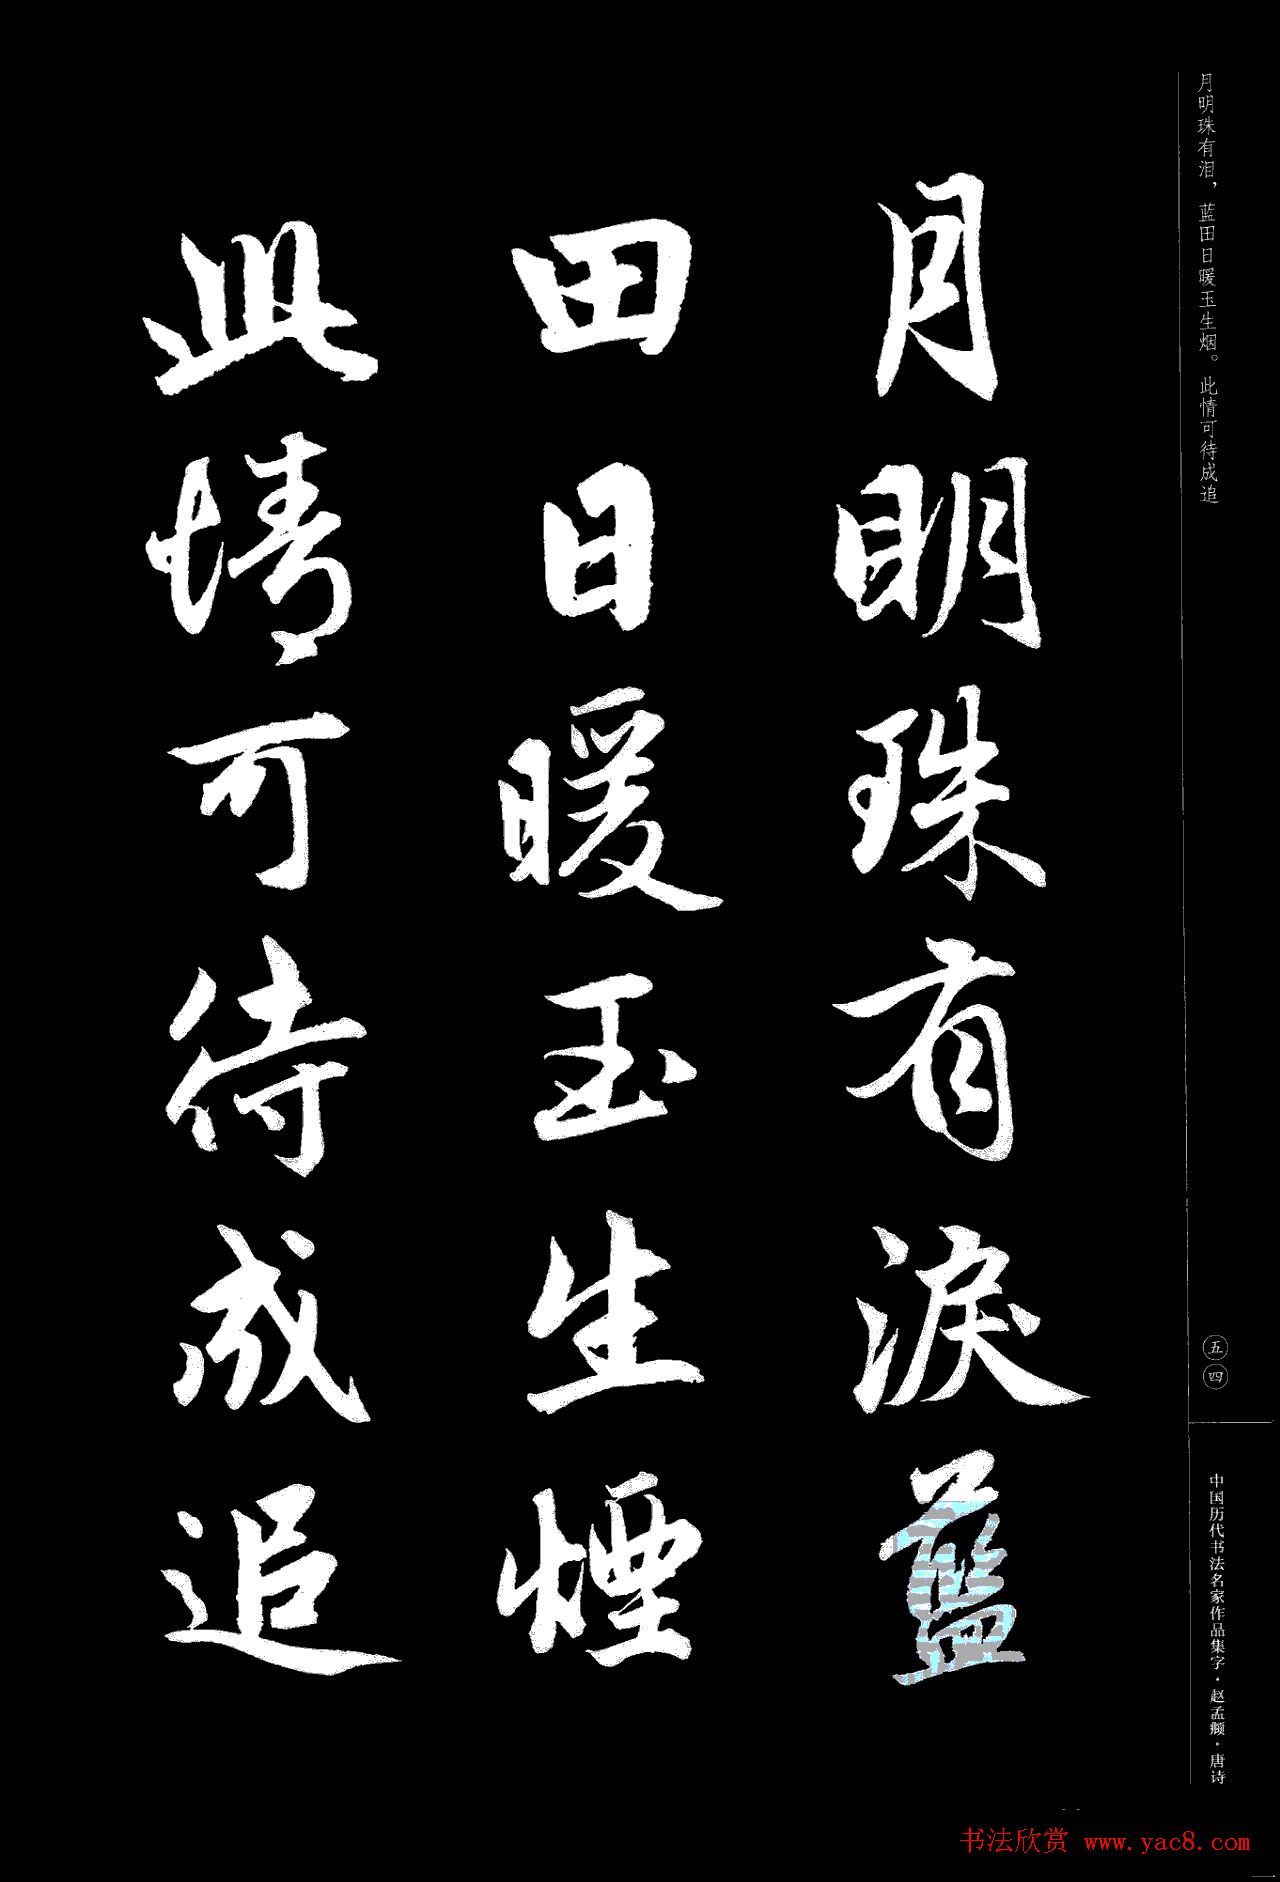 月明珠有泪，蓝田日暖玉生烟。此情可待成追
月明珠有淚藍
田日暖玉生煙
此情可待成追
五四
中国历代书法名家作品集字·赵孟頫·唐诗
书法欣赏 www.yac8.com